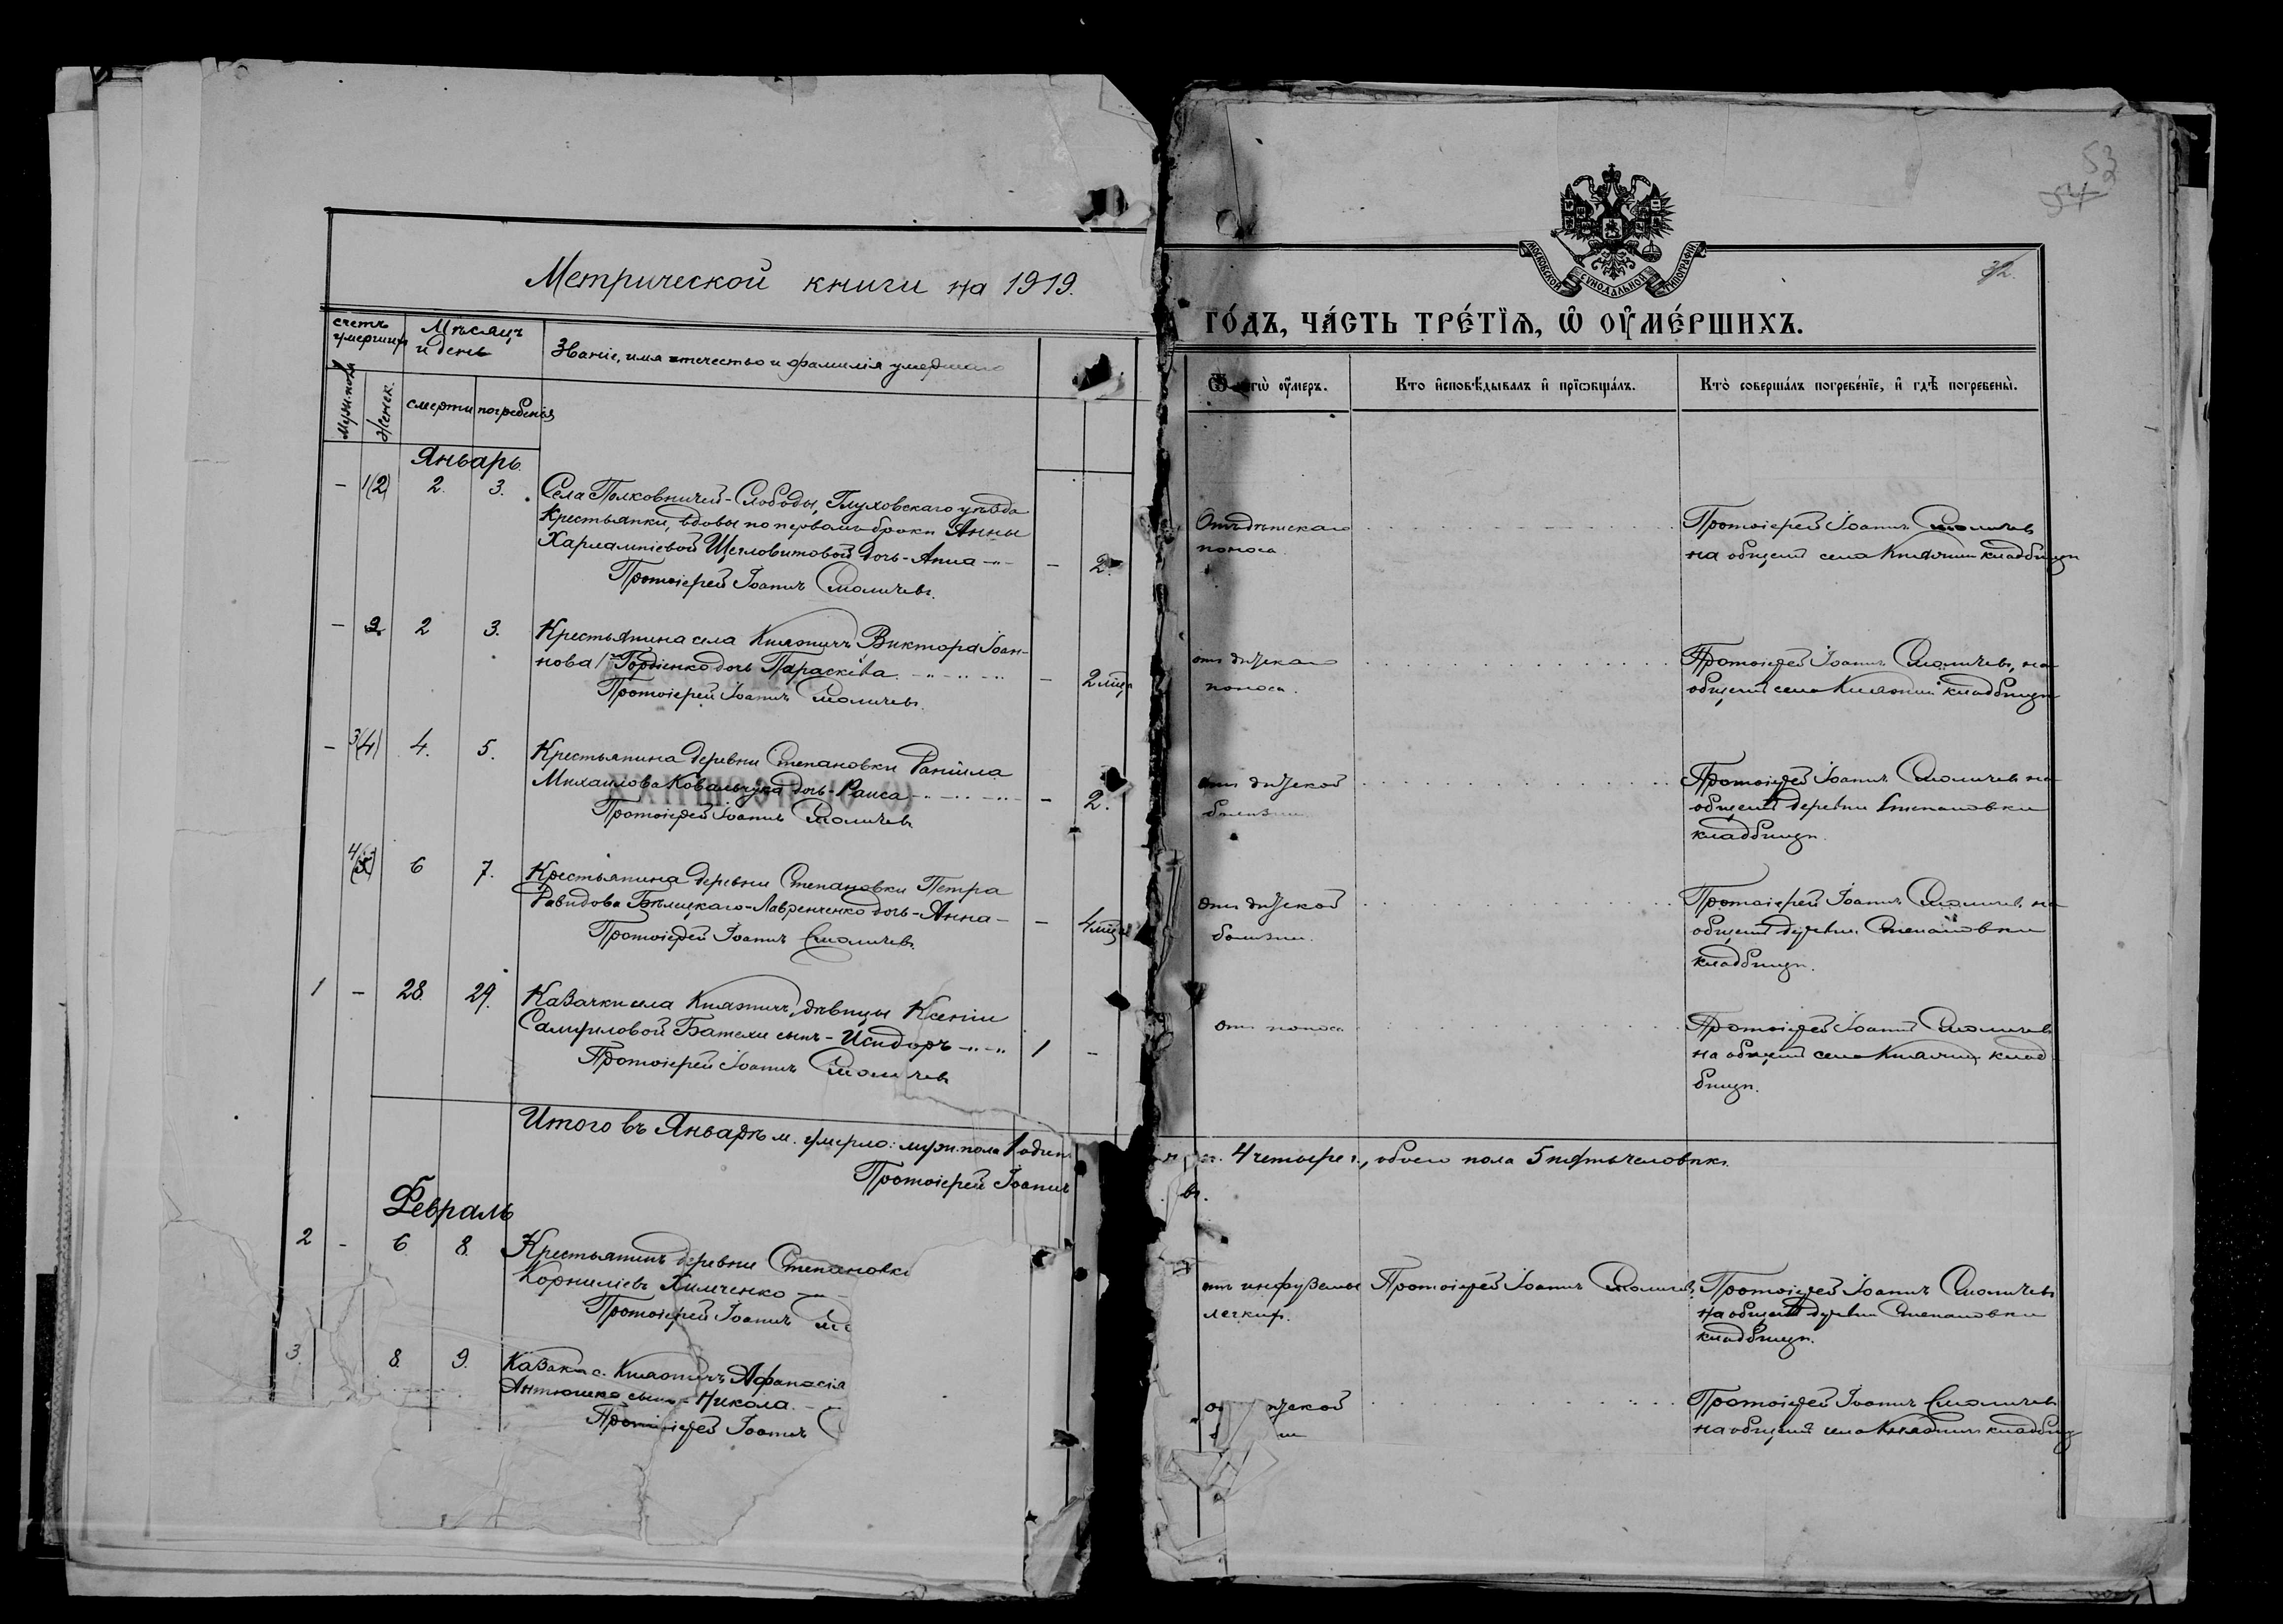 53
54
32.
МОСКОВСКОЙ СУНОДАЛЬНОЙ ТИПОГРАФІИ
Метрической книги на 1919.
го́дъ, ча́сть тре́тїѧ, ѡ҆ ᲂу҆ме́ршихъ.
счетъ умершихъ
Мужн. пола
Женск.
Мѣсяцъ и день
смерти погребенія
Званіе, имя отчество и фамилія умершаго
ᲂу҆меръ.
Кто и҆сповѣ́дывалъ и҆ прїѡбща́лъ.
Кто̀ соверша́лъ погребе́нїе, и҆ гдѣ̀ погребены̀.
Январь.
– 1(2) 2. 3. Села Полковничей-Слободы, Глуховскаго уѣзда
Крестьянки, вдовы по первому браку Анны
Харлампіевой Шегловитовой дочь - Анна
– 2.
Протоіерей Іоаннъ Смоличевъ.
Отъ дѣтскаго
поноса.
Протоіерей Іоаннъ Смоличевъ
на общемъ села Княжичъ кладбищѣ
– 2 2 3. Крестьянина села Княжичъ Виктора Іоан-
нова Гордіенко дочь Параскева
– 2 мѣс.
Протоіерей Іоаннъ Смоличевъ.
отъ дѣтскаго
поноса.
Протоіерей Іоаннъ Смоличевъ, на
общемъ села Княжичъ кладбищѣ
– 3(4) 4. 5. Крестьянина деревни Степановки Даніила
Михаилова Ковальчука дочь - Раиса
– 2.
Протоіерей Іоаннъ Смоличевъ
отъ дѣтской
болѣзни
Протоіерей Іоаннъ Смоличевъ на
общемъ деревни Степановки
кладбищѣ.
4(5) 6 7. Крестьянина деревни Степановки Петра
Давидова Бѣлецкаго-Лавренченко дочь - Анна -
– 4 мѣс.
Протоіерей Іоаннъ Смоличевъ.
отъ дѣтской
болѣзни.
Протоіерей Іоаннъ Смоличевъ на
общемъ деревни Степановки
кладбищѣ.
1 – 28. 29. Казачки села Княжичъ, дѣвицы Ксеніи
Самуиловой Бателы сынъ - Исидоръ
1 –
Протоіерей Іоаннъ Смоличевъ
отъ поноса
Протоіерей Іоаннъ Смоличевъ
на общемъ села Княжичъ клад-
бищѣ.
Итого въ Январѣ м. умерло: мужн. пола 1 одинъ 4 четыре, обоего пола 5 пять человѣкъ.
Протоіерей Іоаннъ
Февраль
2 – 6 8. Крестьянинъ деревни Степановки
Корниліевъ Химченко
Протоіерей Іоаннъ
отъ инфузіемы
легкихъ.
Протоіерей Іоаннъ Смоличевъ.
Протоіерей Іоаннъ Смоличевъ
на общемъ деревни Степановки
кладбищѣ.
3. 8. 9. Казака с. Княжичъ Афанасія
Антюшко сынъ - Никола
Протоіерей Іоаннъ
Протоіерей Іоаннъ Смоличевъ
на общемъ села Княжичъ кладбищ